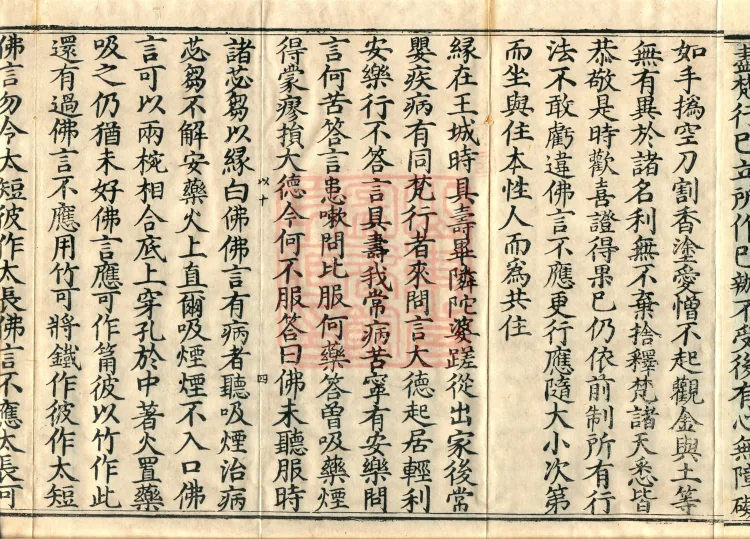 盡梵行已立所作已辦不受後有心無障礙
如手撝空刀割香塗愛憎不起觀金與土等
無有異於諸名利無不棄捨釋梵諸天悉皆
恭敬是時歡喜證得果已仍依前制所有行
法不敢虧違佛言不應更行應隨大小次第
而坐與住本性人而爲共住
緣在王城時具壽畢隣陀婆蹉從出家後常
嬰疾病有同梵行者來問言大德起居輕利
安樂行不答言具壽我常病苦寧有安樂問
言何苦答言患嗽問比服何藥答曾吸藥煙
得蒙瘳損大德今何不服答曰佛未聽服時
以十 四
諸苾芻以緣白佛佛言有病者聽吸煙治病
苾芻不解安藥火上直爾吸煙煙不入口佛
言可以兩椀相合底上穿孔於中著火置藥
吸之仍猶未好佛言應可作筩彼以竹作此
還有過佛言不應用竹可將鐵作彼作太短
佛言勿令太短彼作太長佛言不應太長可